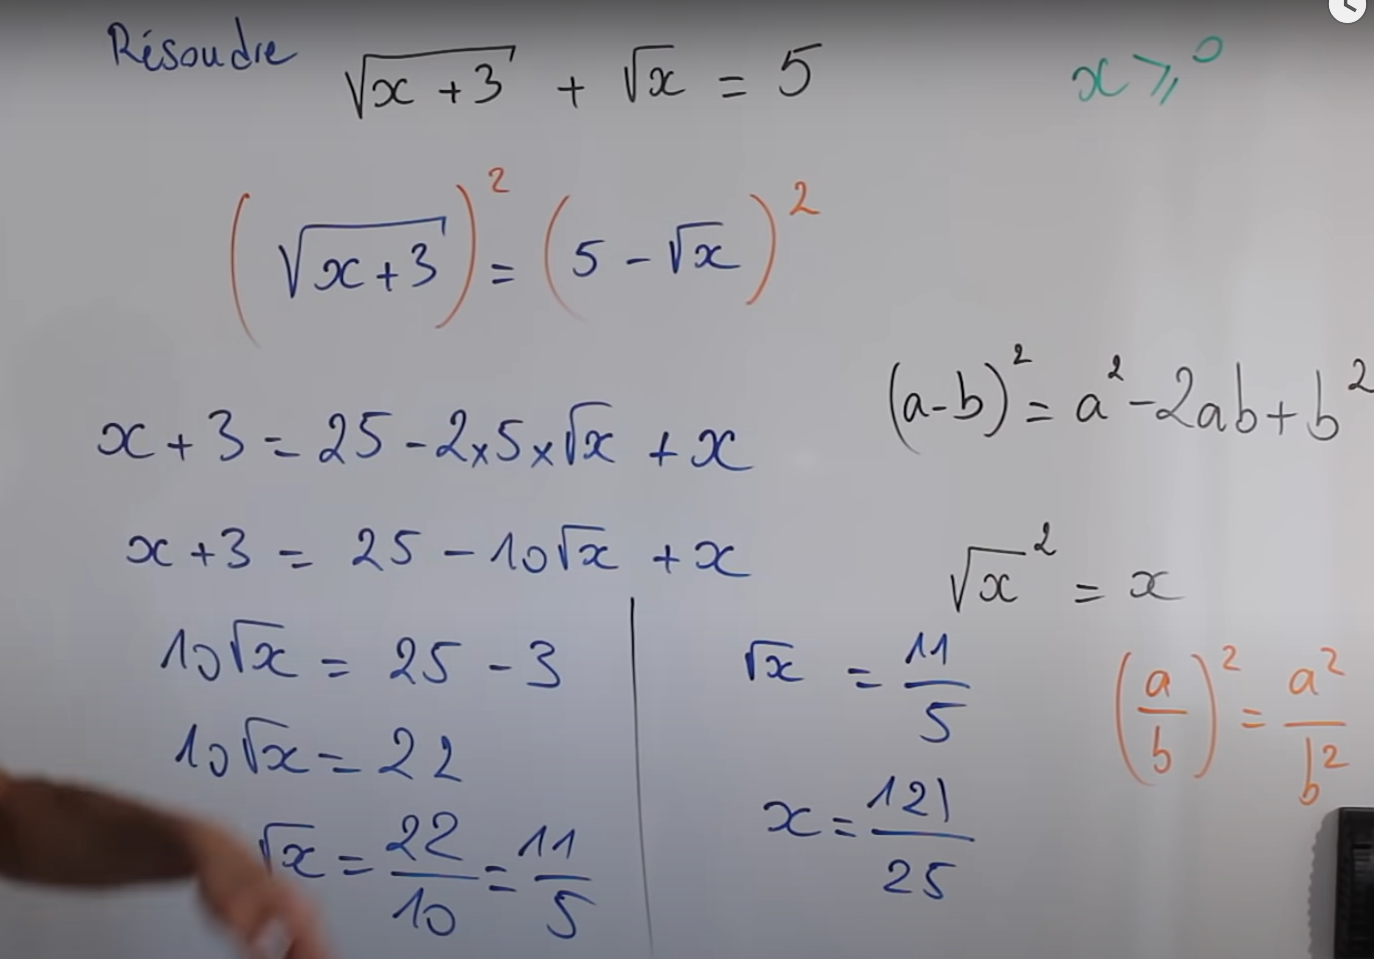 Résoudre √(x+3) + √x = 5
x ⩾ 0
(√(x+3))² = (5 - √x)²
x + 3 = 25 - 2×5×√x + x
(a-b)² = a² - 2ab + b²
x + 3 = 25 - 10√x + x
√x² = x
10√x = 25 - 3
10√x = 22
√x = 22/10 = 11/5
√x = 11/5
x = 121/25
(a/b)² = a²/b²